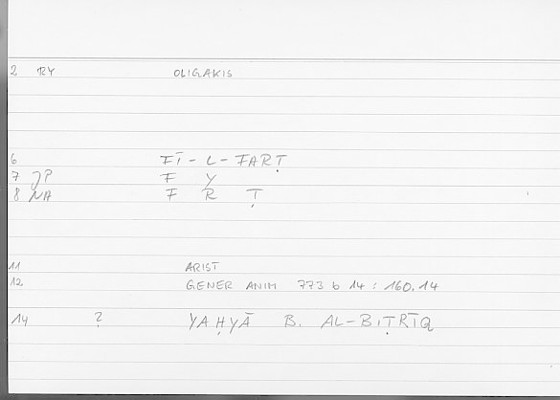 2 RY OLIGAKIS
6 FĪ-L-FARṬ
7 JP F Y
8 NA F R Ṭ
11 ARIST
12 GENER ANIM 773 b 14 : 160.14
14 ? YAḤYĀ B. AL-BIṬRĪQ